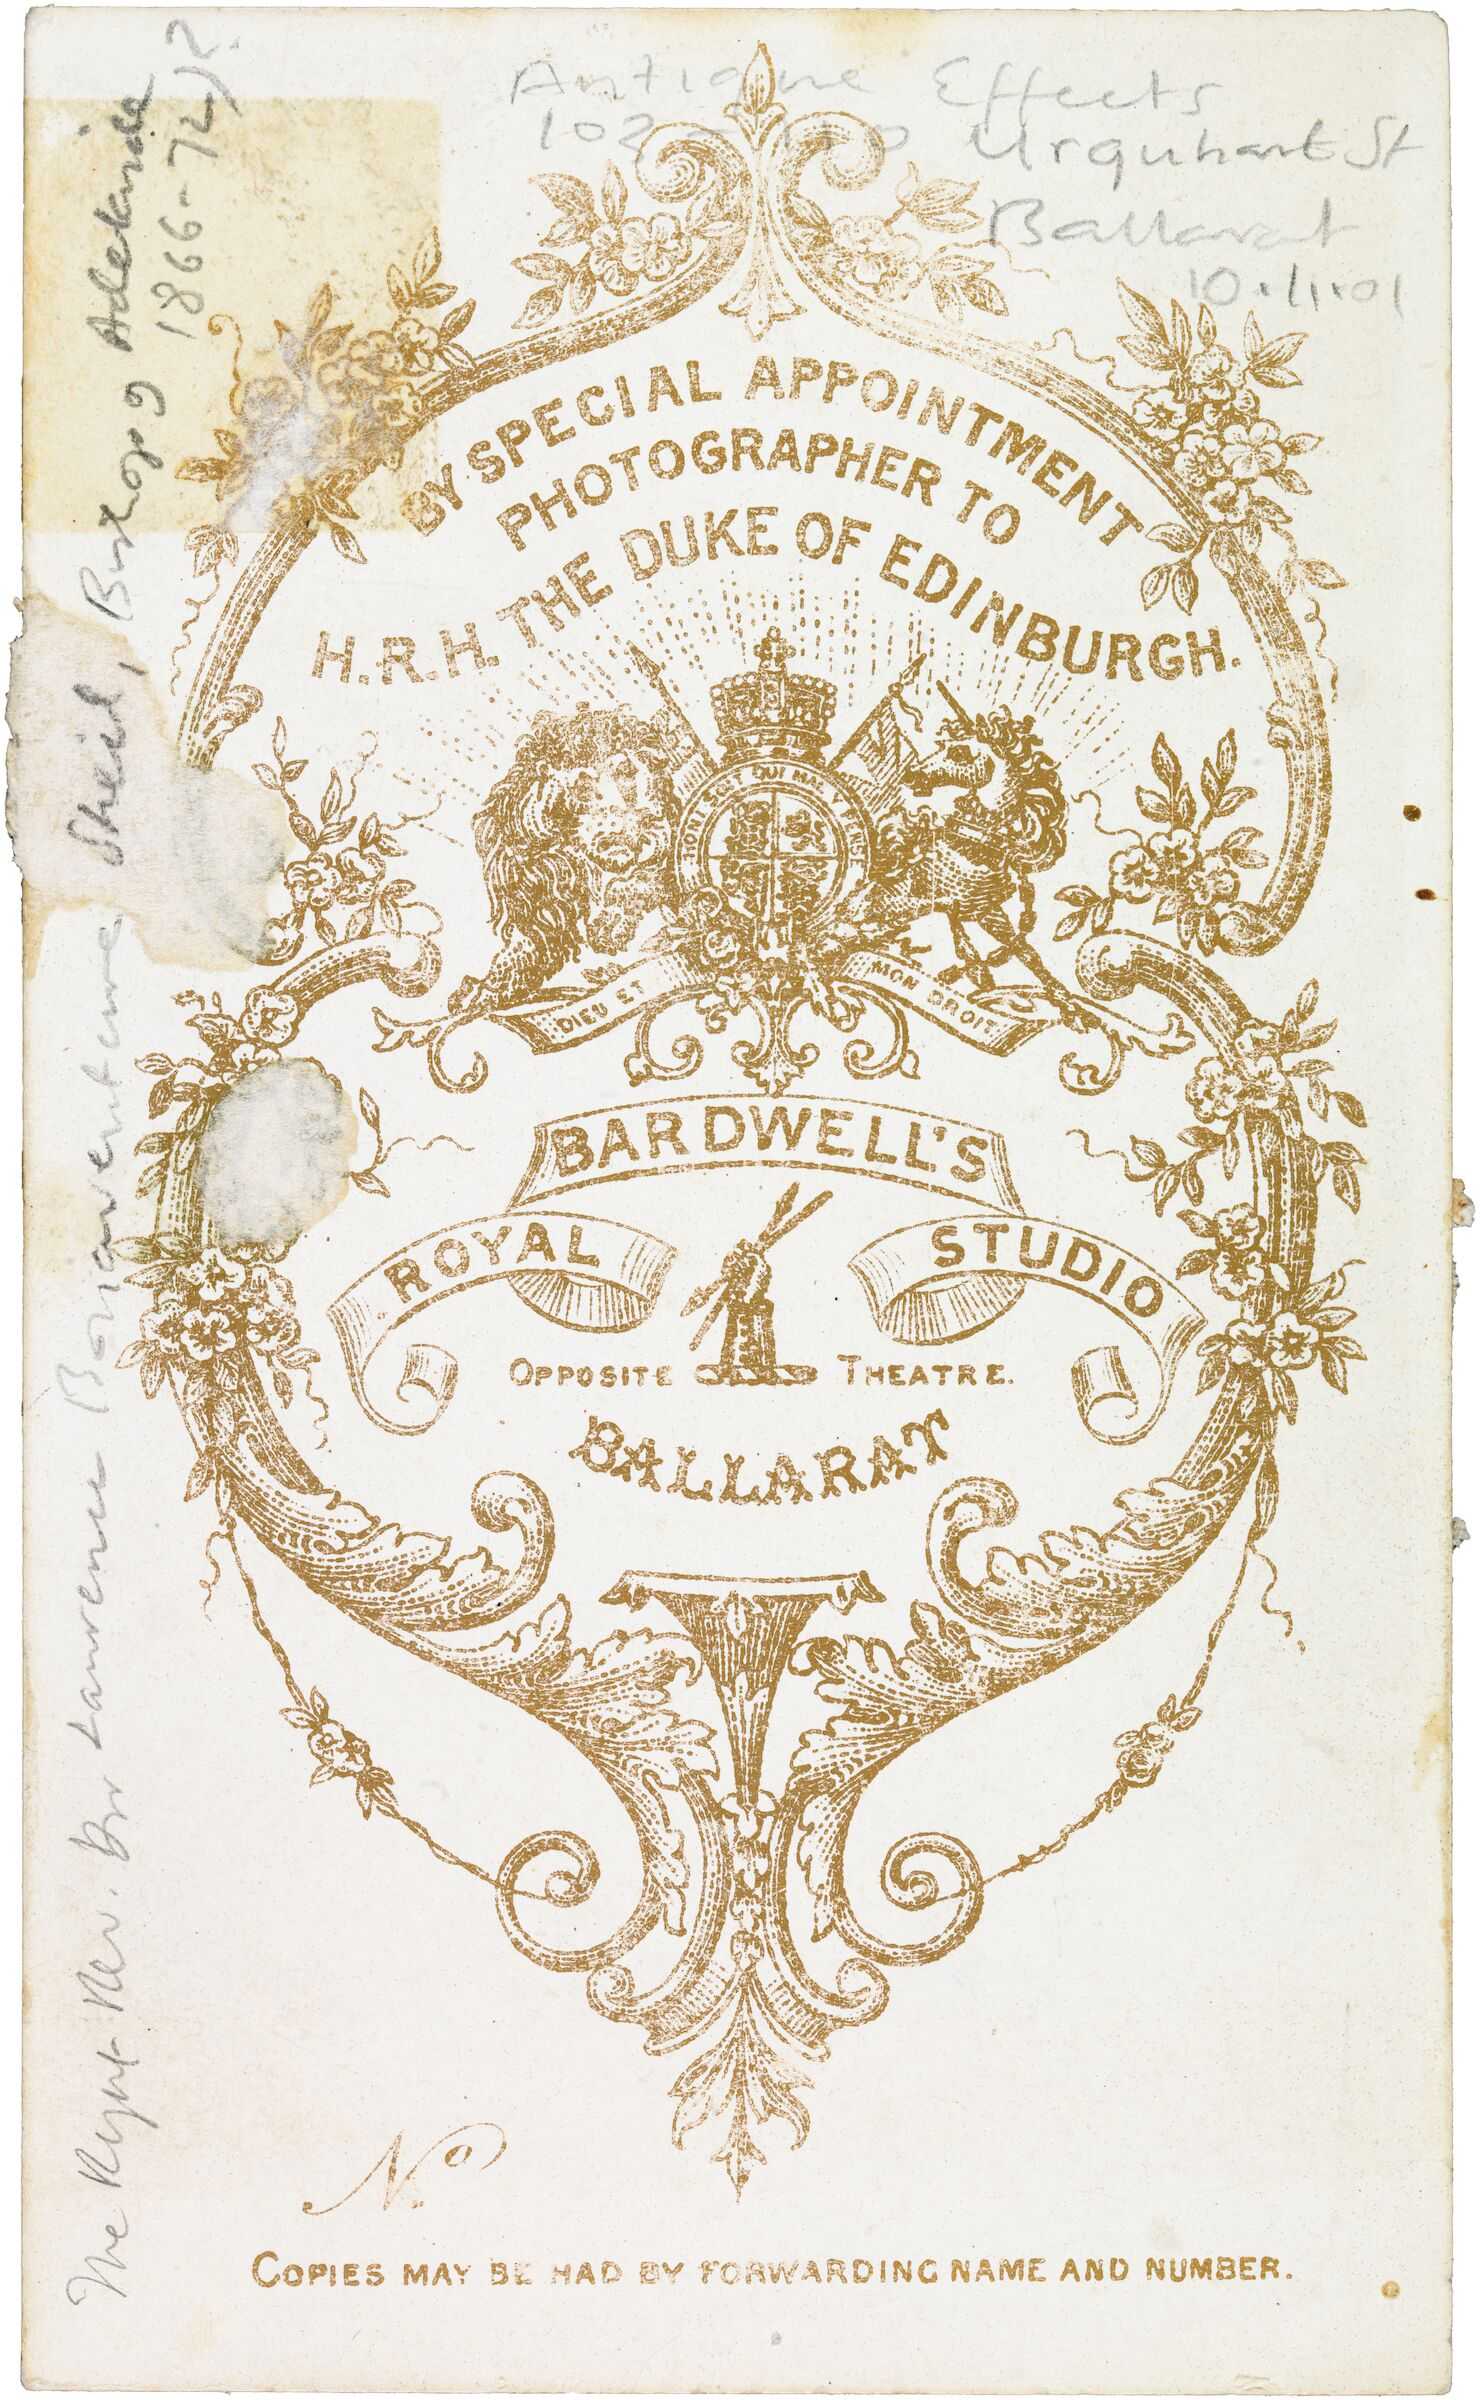 Antique Effects
102 - 110 Urquhart St
Ballarat
10.11.01
BY SPECIAL APPOINTMENT
PHOTOGRAPHER TO
H.R.H. THE DUKE OF EDINBURGH.
HONI SOIT QUI MAL Y PENSE
DIEU ET MON DROIT
BARDWELL'S
ROYAL STUDIO
OPPOSITE THEATRE.
BALLARAT
No
COPIES MAY BE HAD BY FORWARDING NAME AND NUMBER.
The Rev. Dr Lawrence Bonaventure Sheil, Bishop of Adelaide
1866-72)?